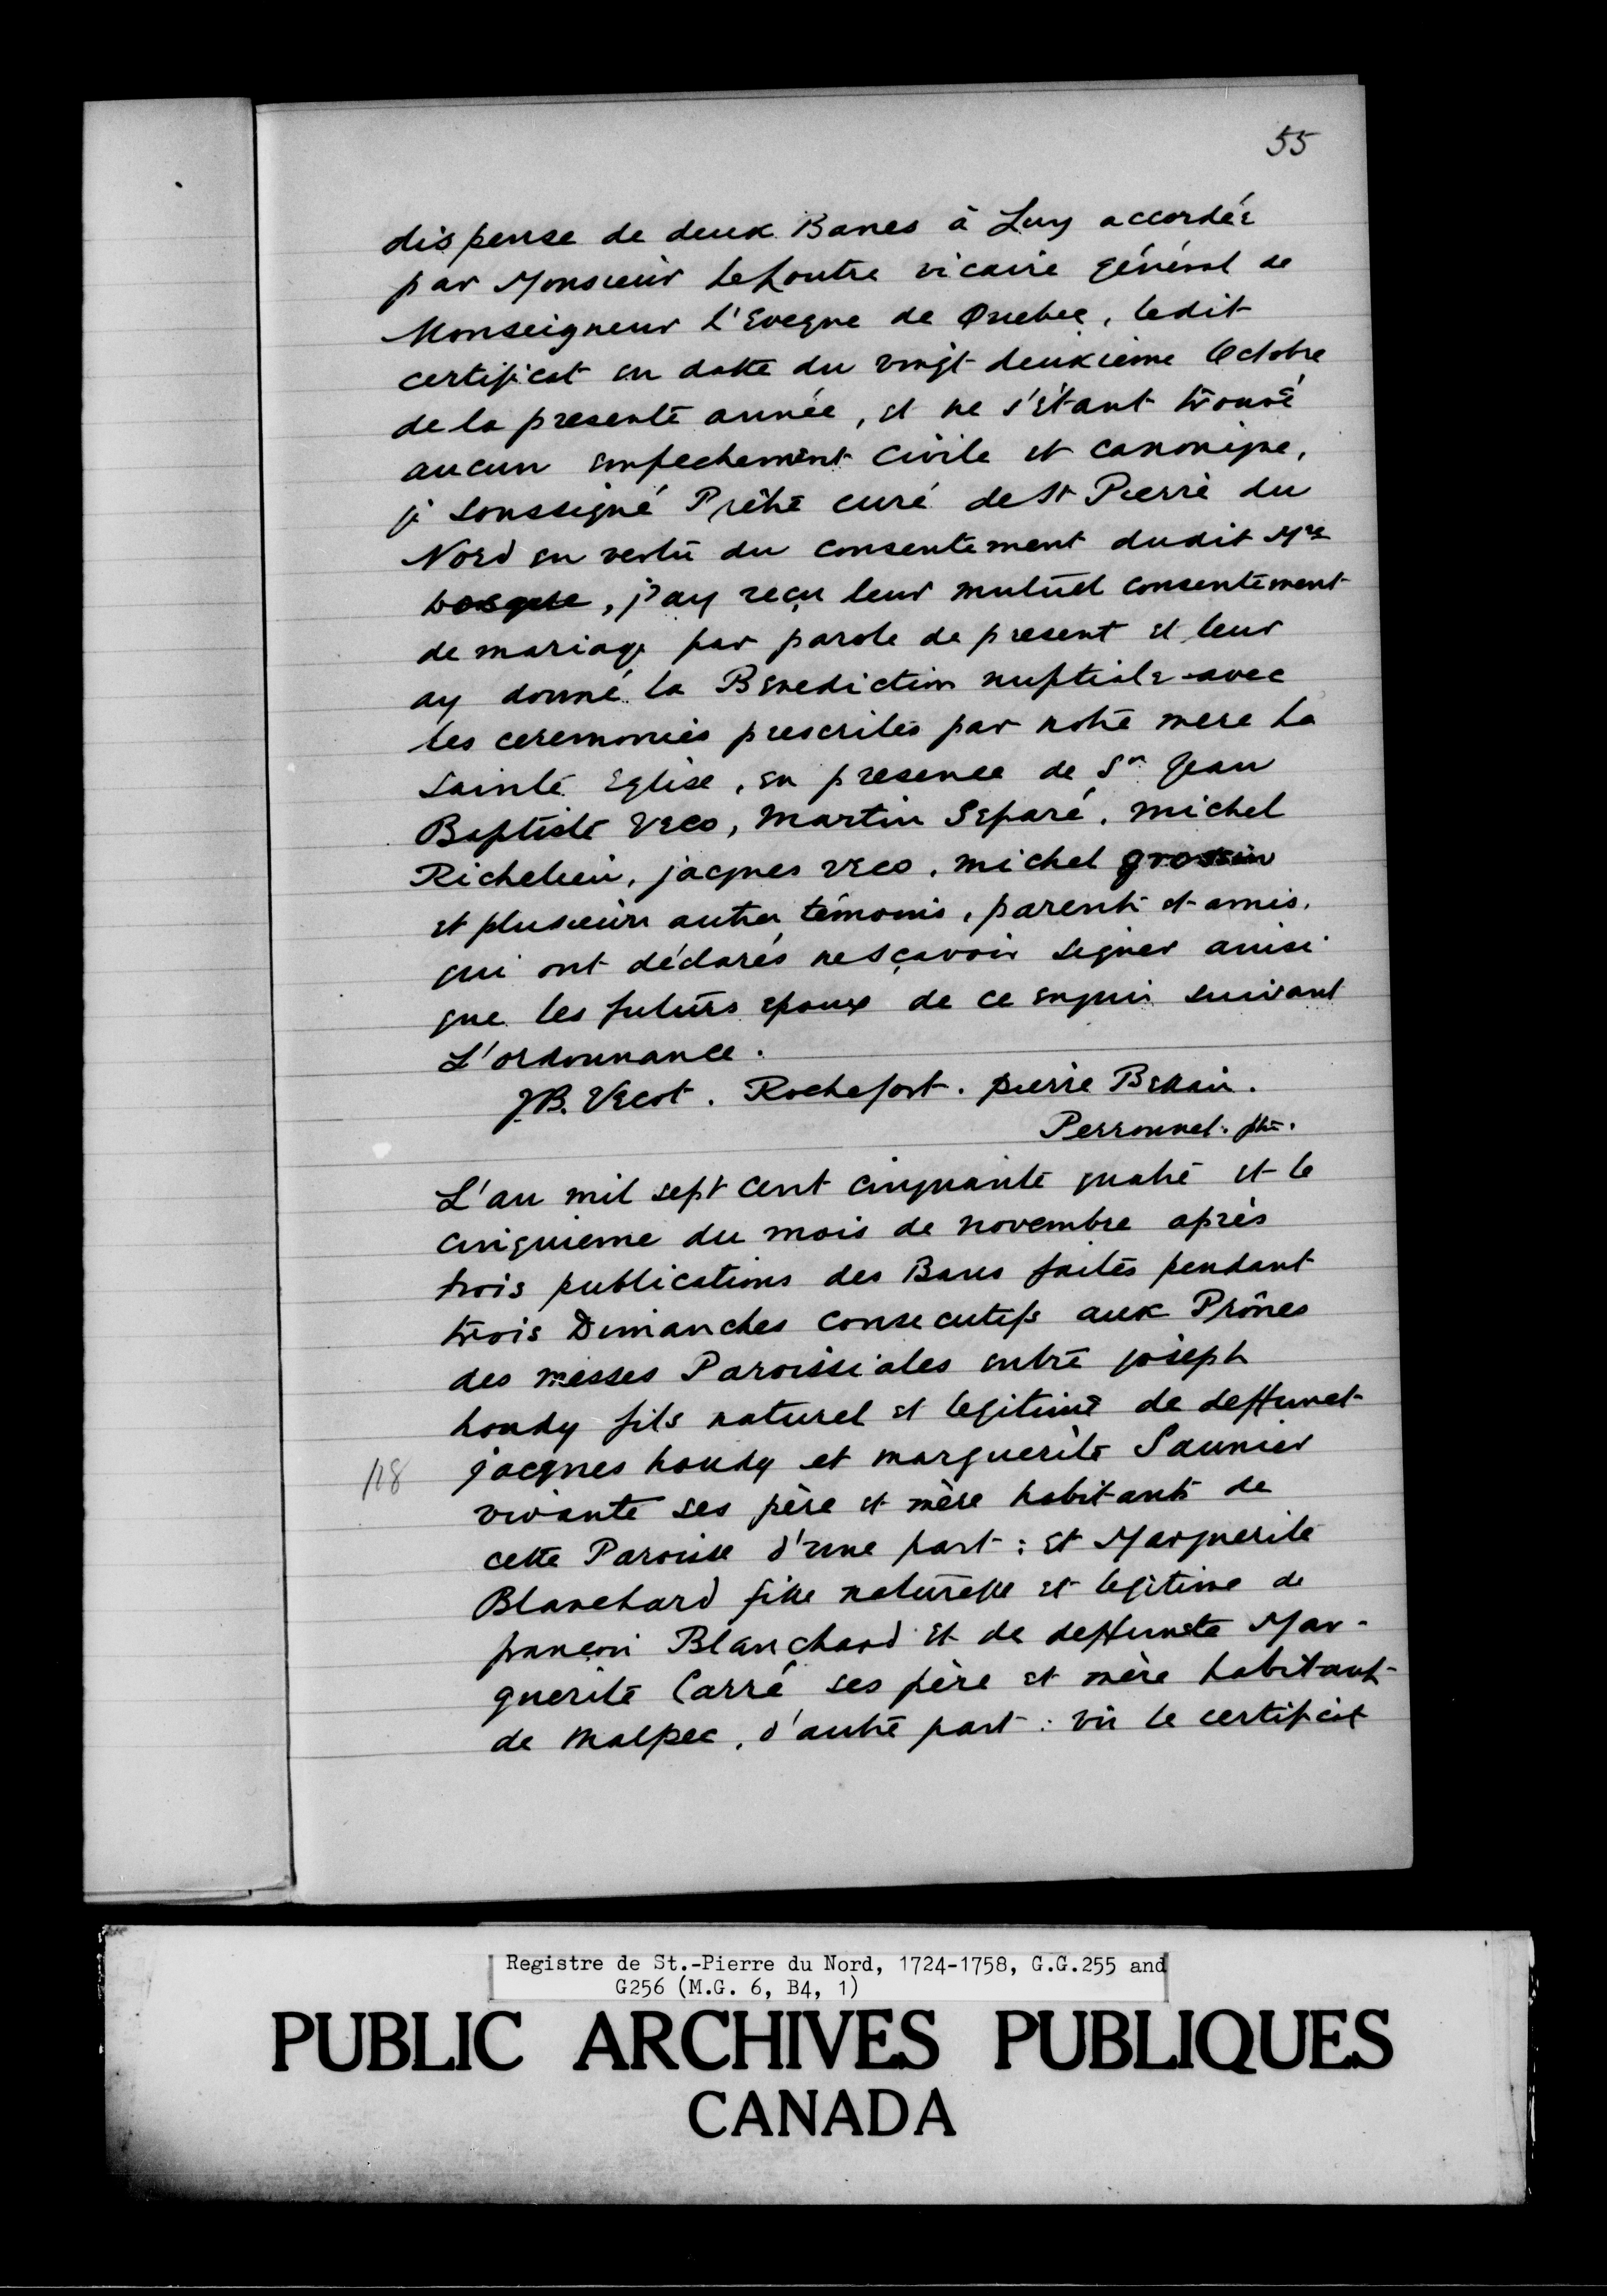 55
dispense de deux Banes à Luy accordée
par Monsieur LeLoutre vicaire général de
Monseigneur l'Eveque de Quebec, ledit
certificat en datte du vingt deuxieme Octobre
de la presente année, et ne s'étant trouvé
aucun empechement civile et canonique,
je soussigné Prêtre curé de St Pierre du
Nord en vertu du consentement dudit Mre
, j'ay reçu leur mutuel consentement
de mariage par parole de present et leur
ay donné la Benediction nuptiale avec
les ceremonies prescrites par notre mere la
sainte Eglise, en presence de Sr Jean
Baptiste Veco, Martin Separé, michel
Richelieu, jacques veco, michel grossin
et plusieurs autres témoins, parents et amis,
qui ont déclarés ne sçavoir signer ainsi
que les futurs epoux de ce enquis suivant
L'ordonnance.
JB. Vecot. Rochefort. pierre.
Perronnel. ptre.
L'an mil sept cent cinquante quatre et le
cinquieme du mois de novembre après
trois publications des Bans faites pendant
trois Dimanches consecutifs aux Prônes
des messes Paroissiales entre joseph
houdy fils naturel et legitime de deffunct
118
jacques houdy et marguerite Saunier
vivante ses père et mère habitants de
cette Paroisse d'une part : et Marguerite
Blanchard fille naturelle et legitime de
françois Blanchard et de deffuncte Mar-
guerite Carré ses père et mère habitant
de Malpec, d'autre part : vû le certificat
Registre de St.-Pierre du Nord, 1724-1758, G.G.255 and
G256 (M.G. 6, B4, 1)
PUBLIC ARCHIVES PUBLIQUES
CANADA